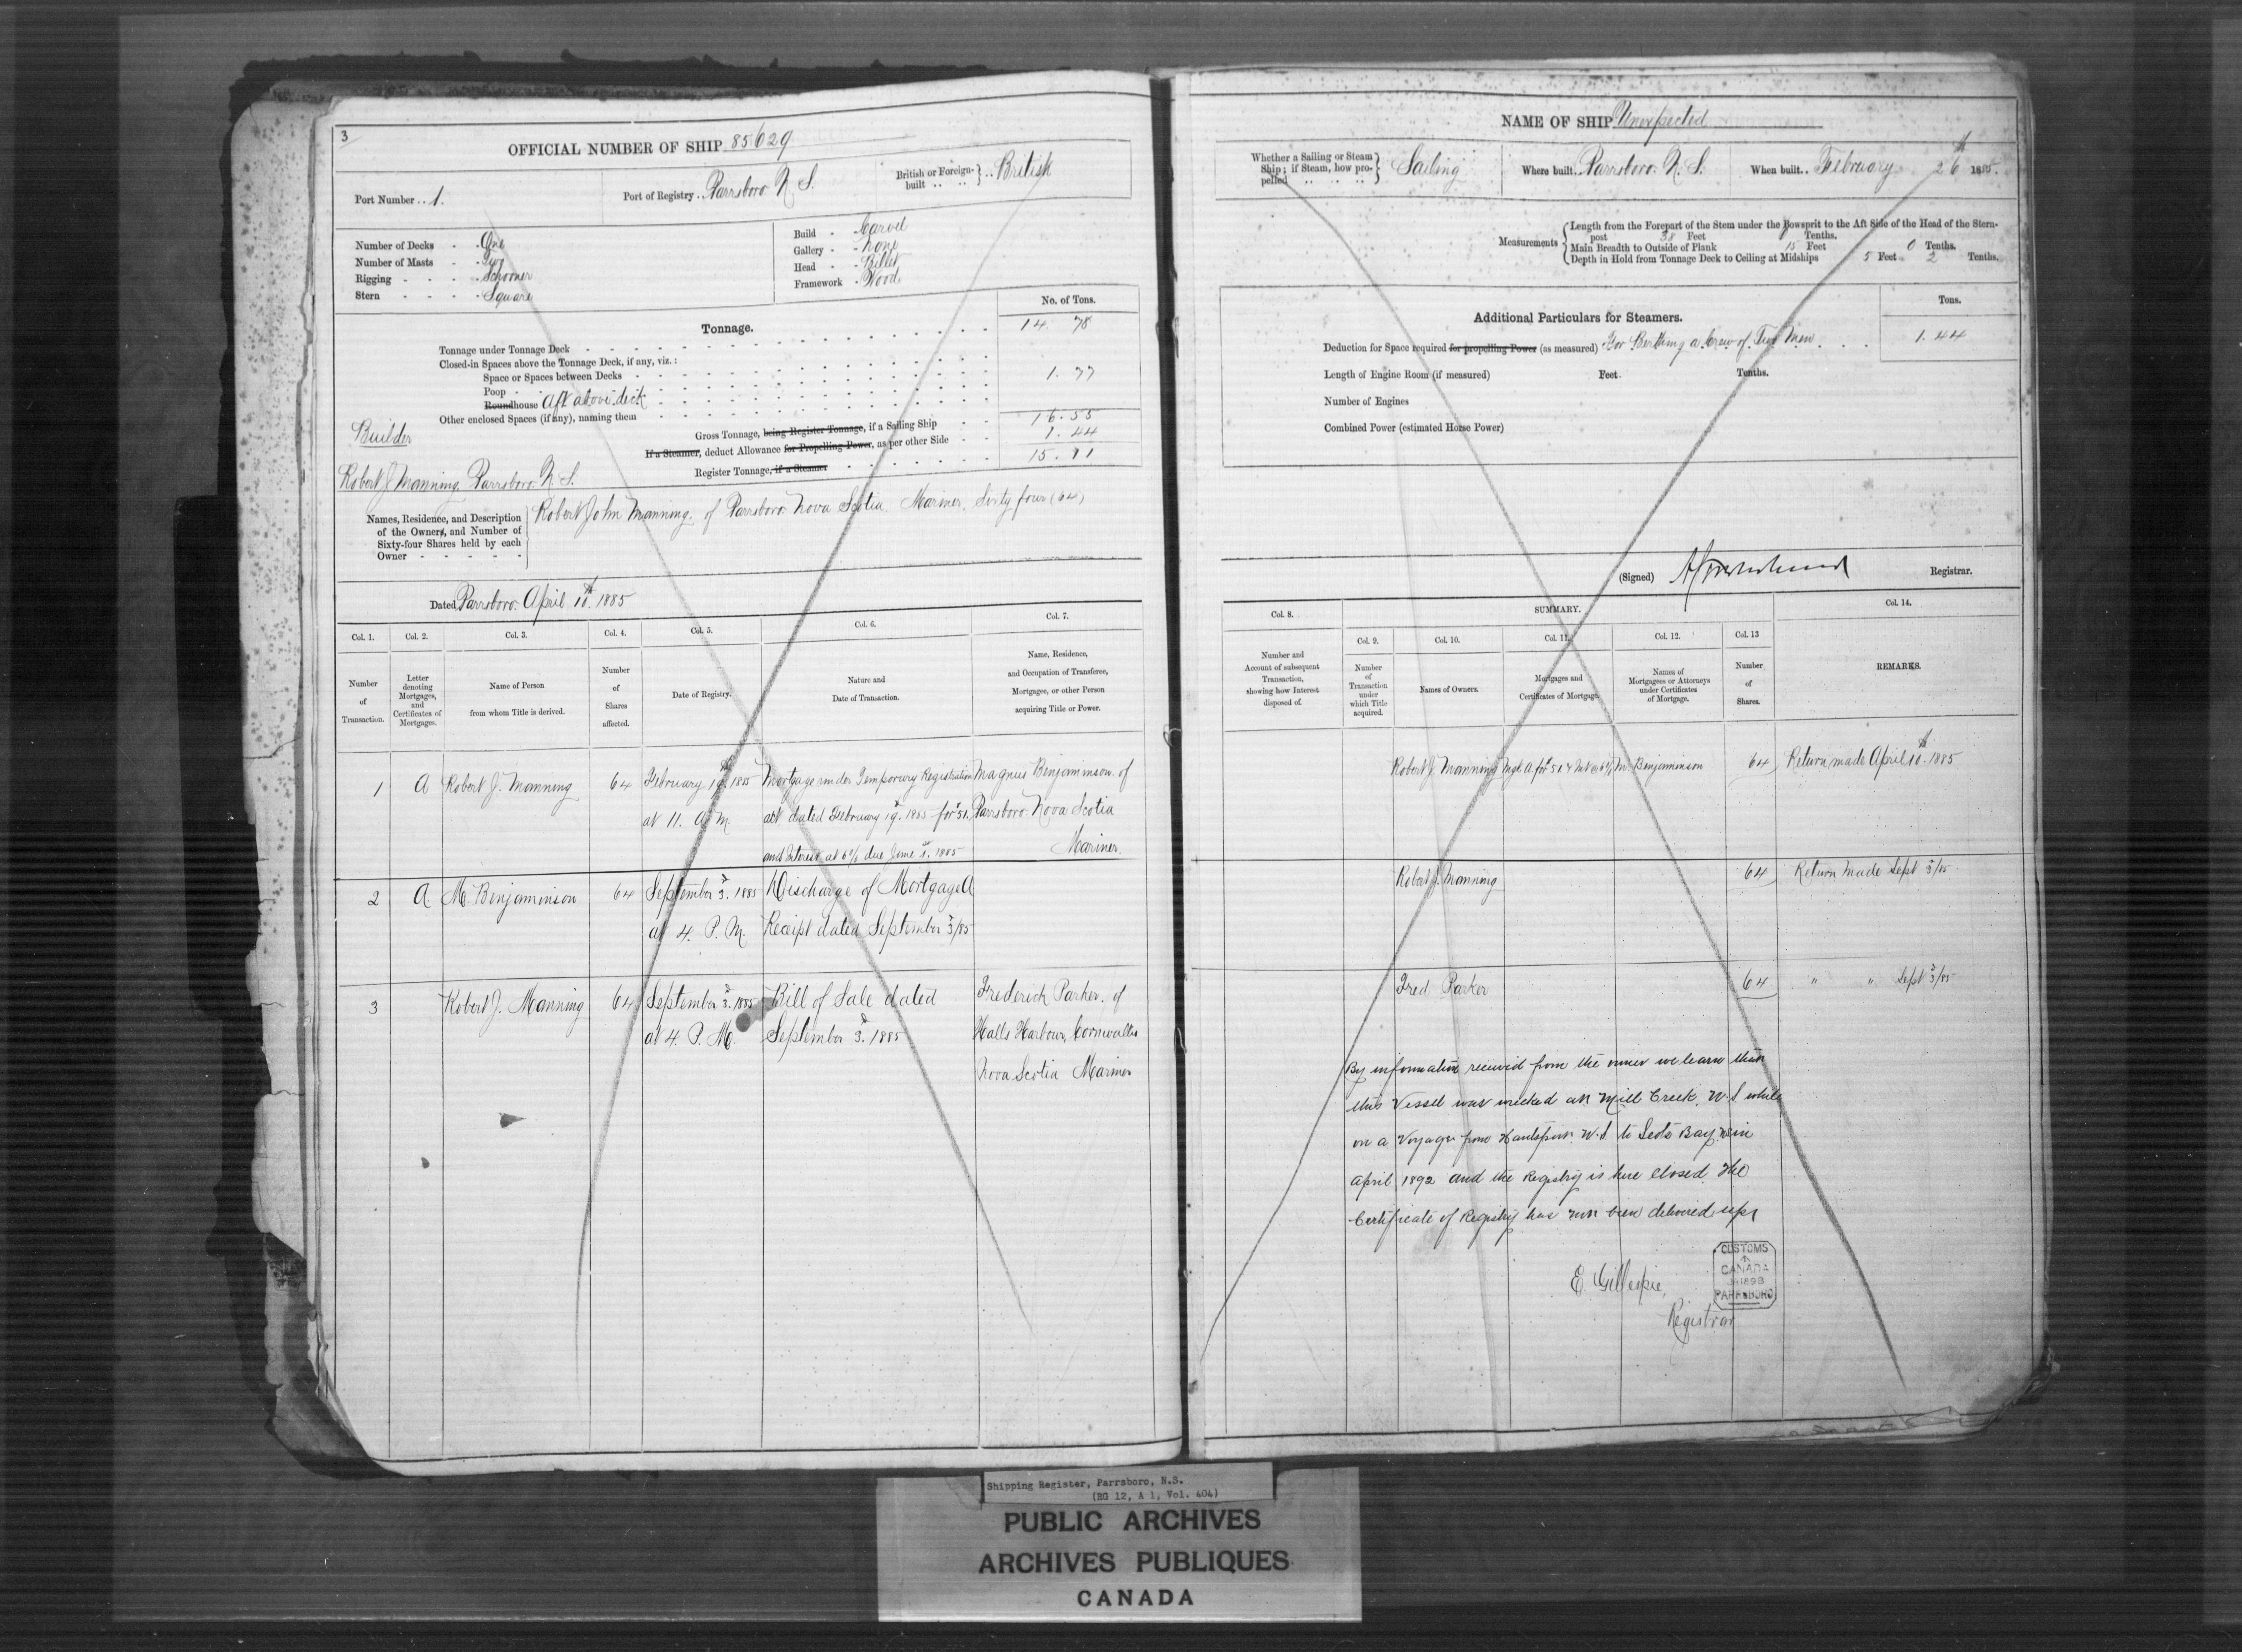 3
OFFICIAL NUMBER OF SHIP 85629
Port Number .. 1.
Port of Registry .. Parrsboro N S.
British or Foreign-built .. British
Number of Decks - - One
Number of Masts - - Two
Rigging - - - - Schooner
Stern - - - - Square
Build - - Carvel
Gallery - - None
Head - - Billet
Framework - Wood
No. of Tons.
Tonnage.
Tonnage under Tonnage Deck 14. 78
Closed-in Spaces above the Tonnage Deck, if any, viz.:
Space or Spaces between Decks
Poop 1. 77
Roundhouse Aft above deck
Other enclosed Spaces (if any), naming them
Gross Tonnage, being Register Tonnage, if a Sailing Ship 16. 55
If a Steamer, deduct Allowance for Propelling Power, as per other Side 1. 44
Register Tonnage, if a Steamer 15. 11
Builder
Robert J Manning Parrsboro N. S.
Names, Residence, and Description of the Owners, and Number of Sixty-four Shares held by each Owner
Robert John Manning. of Parrsboro Nova Scotia. Mariner. Sixty four (64)
Dated Parrsboro. April 10th. 1885
Col. 1. Col. 2. Col. 3. Col. 4. Col. 5. Col. 6. Col. 7.
Number of Transaction.
Letter denoting Mortgages, and Certificates of Mortgages.
Name of Person from whom Title is derived.
Number of Shares affected.
Date of Registry.
Nature and Date of Transaction.
Name, Residence, and Occupation of Transferee, Mortgagee, or other Person acquiring Title or Power.
1 A Robert J. Manning 64 February 19th. 1885 Mortgage under Temporary Registration Magnus Benjaminson of
at 11. A M. dated February 19. 1885 for Parrsboro Nova Scotia
and Interest at 6% due June 1st. 1885 Mariner.
2 A M. Benjaminson 64 September 3d. 1885 Discharge of Mortgage A
at 4. P. M. Receipt dated September 3/85
3 Robert J. Manning 64 September 3d. 1885 Bill of Sale dated Frederick Parker. of
at 4. P. M. September 3d. 1885 Halls Harbour, Cornwallis
Nova Scotia Mariner
NAME OF SHIP Unexpected
Whether a Sailing or Steam Ship; if Steam, how propelled Sailing
Where built .. Parrsboro. N. S.
When built .. February 26th 1885.
Measurements
Length from the Forepart of the Stem under the Bowsprit to the Aft Side of the Head of the Stern-
post 38 Feet Tenths.
Main Breadth to Outside of Plank 15 Feet 0 Tenths.
Depth in Hold from Tonnage Deck to Ceiling at Midships 5 Feet 2 Tenths.
Tons.
Additional Particulars for Steamers.
Deduction for Space required for propelling Power (as measured) For Berthing a Crew of Two Men 1. 44
Length of Engine Room (if measured) Feet. Tenths.
Number of Engines
Combined Power (estimated Horse Power)
(Signed) Registrar.
Col. 8. SUMMARY. Col. 14.
Col. 9. Col. 10. Col. 11. Col. 12. Col. 13
Number and Account of subsequent Transaction, showing how Interest disposed of.
Number of Transaction under which Title acquired.
Names of Owners.
Mortgages and Certificates of Mortgage.
Names of Mortgagees or Attorneys under Certificates of Mortgage.
Number of Shares.
REMARKS.
Robert J. Manning Mge A for M. Benjaminson 64 Return made April 10th. 1885
Robert J. Manning 64 Return Made Sept 3/85
Fred Parker 64 " " Sept 3/85
By information received from the owner we learn that
this Vessel was wrecked at Mill Creek, N. S while
on a Voyage from Hantsport N. S to Bay in
April 1892 and the Registry is here closed. The
Certificate of Registry has not been delivered up.
E. Gillespie,
Registrar
CUSTOMS
CANADA
PARRSBORO
Shipping Register, Parrsboro, N.S.
(RG 12, A 1, Vol. 404)
PUBLIC ARCHIVES
ARCHIVES PUBLIQUES
CANADA